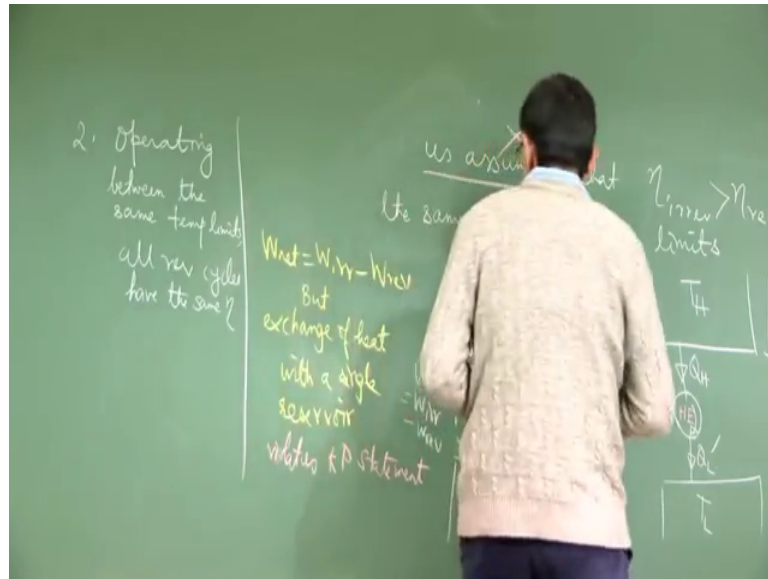 2. Operating
between the
same temp limits,
all rev cycles
have the same η
us assum that
the same
η irrev > η re
limits
Wnet = Wirr - Wrev
But
exchange of heat
with a single
reservoir
violates KP statement
= Wirr
- Wrev
TH
QH
HE
QL'
TL